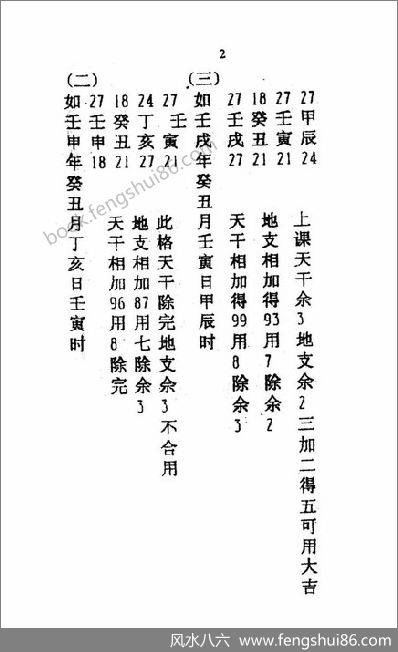 2
(二)
如壬申年癸丑月丁亥日壬寅时
27壬申18
18癸丑21 天干相加96用8除完
24丁亥27 地支相加87用七除余3
27壬寅21 此格天干除完地支余3不合用
(三)
如壬戌年癸丑月壬寅日甲辰时
27壬戌27 天干相加得99用8除余3
18癸丑21 地支相加得93用7除余2
27壬寅21
27甲辰24 上课天干余3地支余2三加二得五可用大吉
book.fengshui86.com
风水八六 www.fengshui86.com